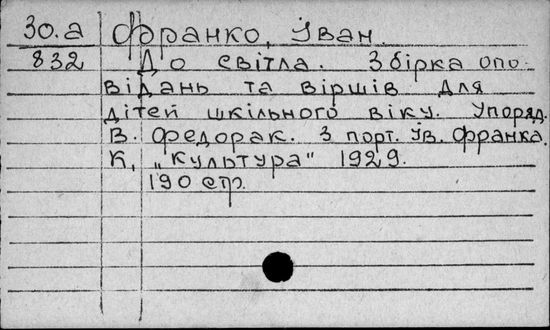 30.а Франко, Іван.
832 До світла. Збірка опо-
відань та віршів для
дітей шкільного віку. Упоряд.
В. Федорак. З порт. Ів. Франка.
К, „Культура" 1929.
190 стр.